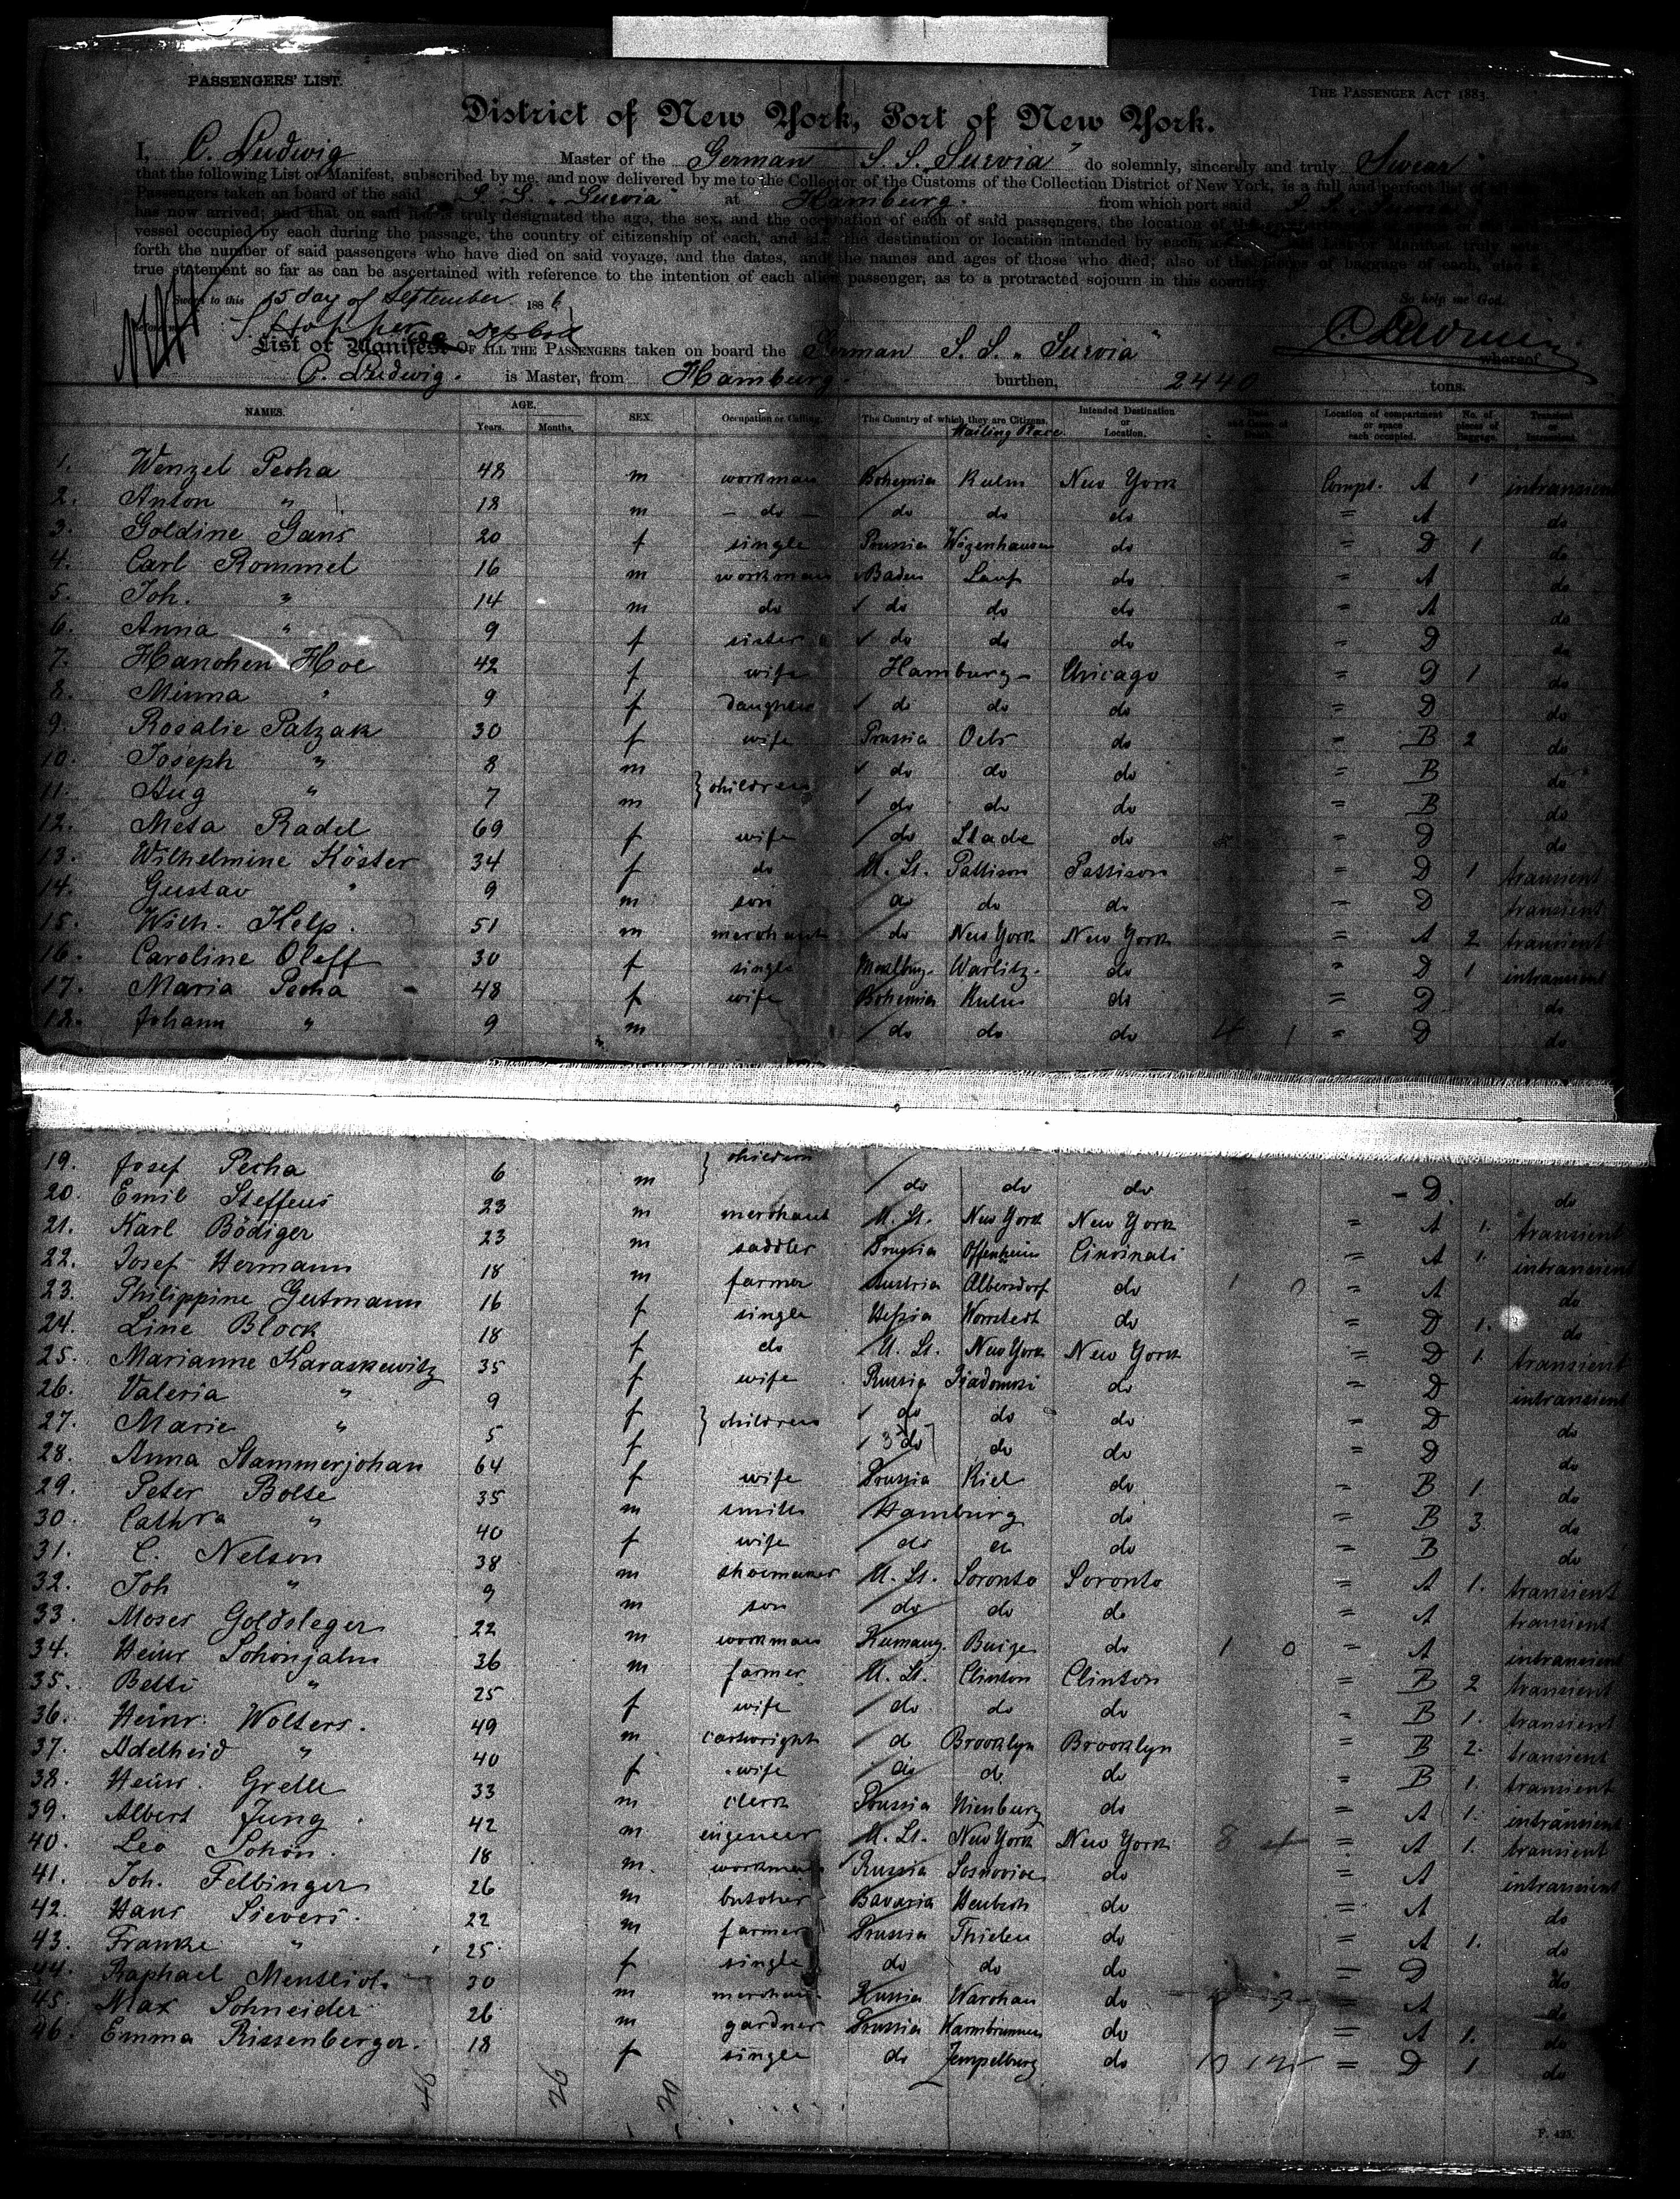 PASSENGERS' LIST.
THE PASSENGER ACT 1883.
District of New York, Port of New York.
I, C. Ludwig Master of the German S. S. "Suevia" do solemnly, sincerely and truly Swear
that the following List or Manifest, subscribed by me, and now delivered by me to the Collector of the Customs of the Collection District of New York, is a full and perfect list of all the
Passengers taken on board of the said S. S. "Suevia" at Hamburg. from which port said S. S. Suevia
has now arrived; and that on said list is truly designated the age, the sex, and the occupation of each of said passengers, the location of the
vessel occupied by each during the passage, the country of citizenship of each, and also the destination or location intended by each; List or Manifest truly sets
forth the number of said passengers who have died on said voyage, and the dates, and the names and ages of those who died; also of the pieces of baggage of each, also a
true statement so far as can be ascertained with reference to the intention of each alien passenger, as to a protracted sojourn in this country.
Sworn to this 15 day of September 1886
So help me God.
C. Ludwig
List or Manifest OF ALL THE PASSENGERS taken on board the German S. S. "Suevia" whereof
C. Ludwig. is Master, from Hamburg. burthen, 2440 tons.
NAMES. AGE. Years. Months. SEX. Occupation or Calling. The Country of which they are Citizens. Intended Destination or Location. Date and Cause of Death. Location of compartment or space each occupied. No. of pieces of Baggage. Transient or Intransient.
1. Wenzel Pecha 48 m workman Bohemia Kulm New York Compt. A 1 intransient
2. Anton " 18 m do do do do = A do
3. Goldine Gans 20 f single Prussia Wizenhausen do = D 1 do
4. Carl Rommel 16 m workman Baden Lauf do = A do
5. Joh. " 14 m do do do do = A do
6. Anna " 9 f sister do do do = D do
7. Hanchen Hoe 42 f wife Hamburg Chicago = D 1 do
8. Minna " 9 f daughter do do do = D do
9. Rosalie Patzak 30 f wife Prussia Oels do = B 2 do
10. Joseph " 8 m } children do do do = B do
11. Aug " 7 m do do do = B do
12. Meta Radel 69 f wife do Stade do = D do
13. Wilhelmine Köster 34 f do U. St. Pattison Pattison = D 1 transient
14. Gustav " 9 m son do do do = D transient
15. Wilh. Help. 51 m merchant do New York New York = A 2 transient
16. Caroline Oleff 30 f single Mecklbg. Warlitz. do = D 1 intransient
17. Maria Pecha 48 f wife Bohemia Kulm do = D do
18. Johann " 9 m do do do = D do
19. Josef Pecha 6 m } children do do do - D do
20. Emil Steffens 23 m merchant U. St. New York New York = A 1. transient
21. Karl Bödiger 23 m saddler Prussia Offenheim Cincinati = A 1. intransient
22. Josef Hermann 18 m farmer Austria Albersdorf do 1 0 = A do
23. Philippine Gutmann 16 f single Hessia Worrstedt do = D 1. do
24. Line Block 18 f do U. St. New York New York = D 1. transient
25. Marianne Karaskewitz 35 f wife Russia do = D intransient
26. Valeria " 9 f } children do do do = D do
27. Marie " 5 f 3 do do do = D do
28. Anna Stammerjohan 64 f wife Prussia Kiel do = B 1. do
29. Peter Bolte 35 m smith Hamburg do = B 3. do
30. Cathra " 40 f wife do do = B do
31. C. Nelson 38 m shoemaker U. St. Toronto Toronto = A 1. transient
32. Joh " 9 m son do do do = A transient
33. Moses Goldsleger 22 m workman do 1 0 = A intransient
34. Heinr Schönjahn 36 m farmer U. St. Clinton Clinton = B 2 transient
35. Betti " 25 f wife do do do = B 1. transient
36. Heinr. Wolters. 49 m cartwright d Brooklyn Brooklyn = B 2. transient
37. Adelheid " 40 f wife do d. do = B 1. transient
38. Heinr. Grelle 33 m clerk Prussia Nienburg do = A 1. intransient
39. Albert Jung. 42 m engeneer U. St. New York New York = A 1. transient
40. Leo Schön. 18 m. workman Russia Sosnovice do = A intransient
41. Joh. Felbinger 26 m butcher Bavaria do = A do
42. Hans Sievers. 22 m farmer Prussia Thielen do = A 1. do
43. Franke " 25 f single do do do = D do
44. Raphael 30 m merchant Russia Warchau do = A do
45. Max Schneider 26 m gardner Prussia Warmbrunnen do = A 1. do
46. Emma Rissenberger. 18 f single do Jempelburg do = D 1 do
46 26 20
F. 425.